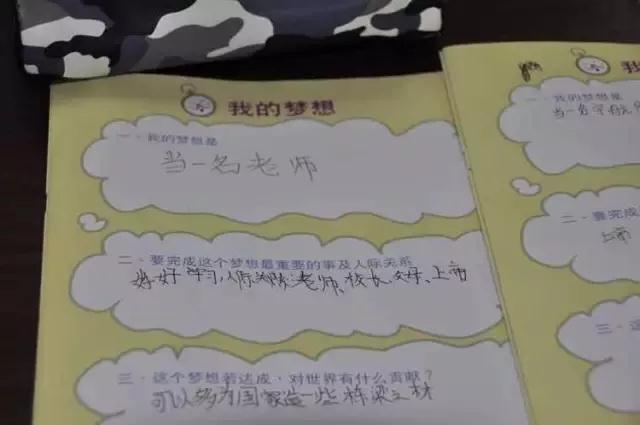 我的梦想
一、我的梦想是
当一名老师
二、要完成这个梦想最重要的事及人际关系
好好学习,人际关系:老师、校长、
三、这个梦想若达成,对世界有什么贡献?
可以够为国家造一些栋梁之材
我
一、我的梦想是
当一名宇航
二、要完成
三、这